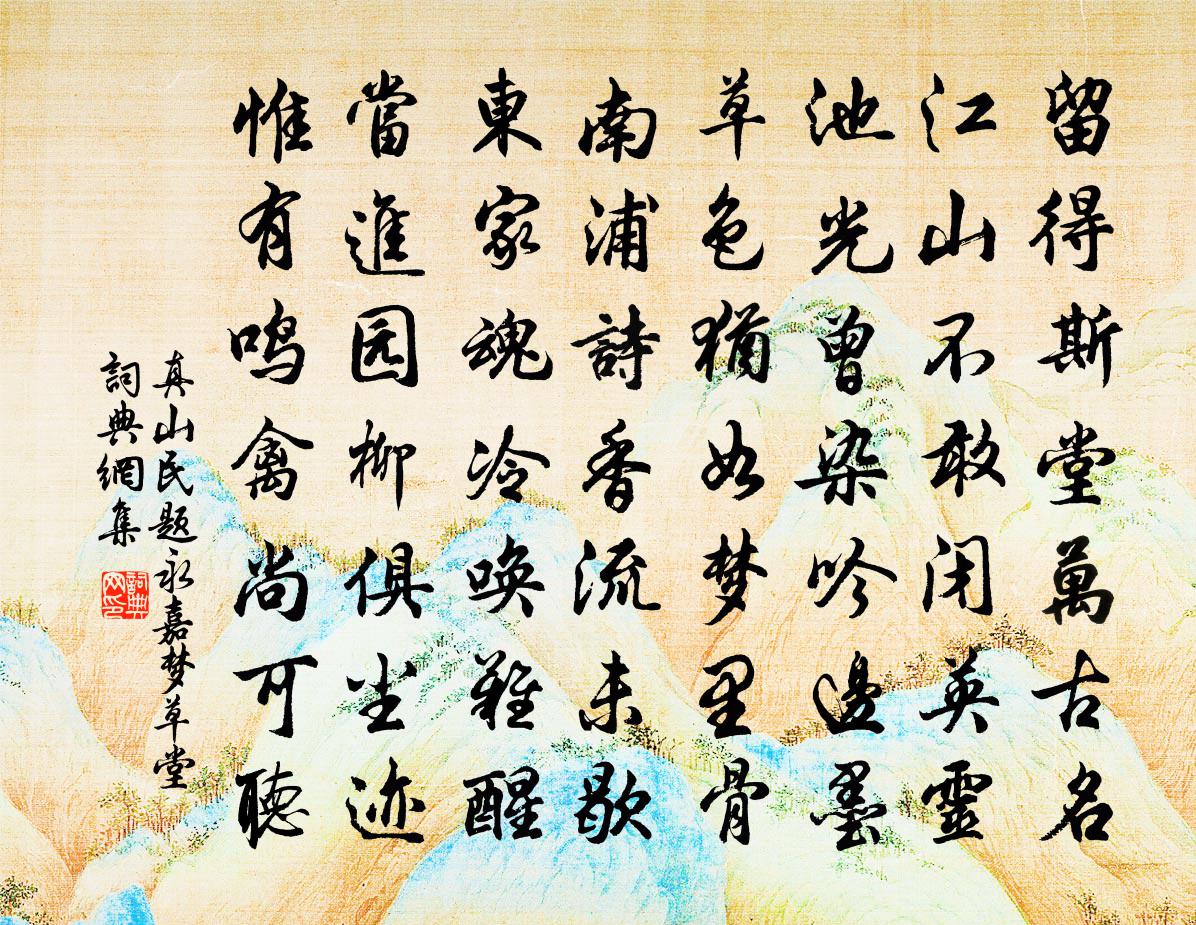 留得斯堂萬古名
江山不敢闭英靈
池光曾染吟邊墨
草色猶如梦里骨
南浦詩香流未歇
東家魂冷唤難醒
當進园柳俱尘迹
惟有鸣禽尚可聽
真山民题永嘉梦草堂
詞典網集
詞典网印